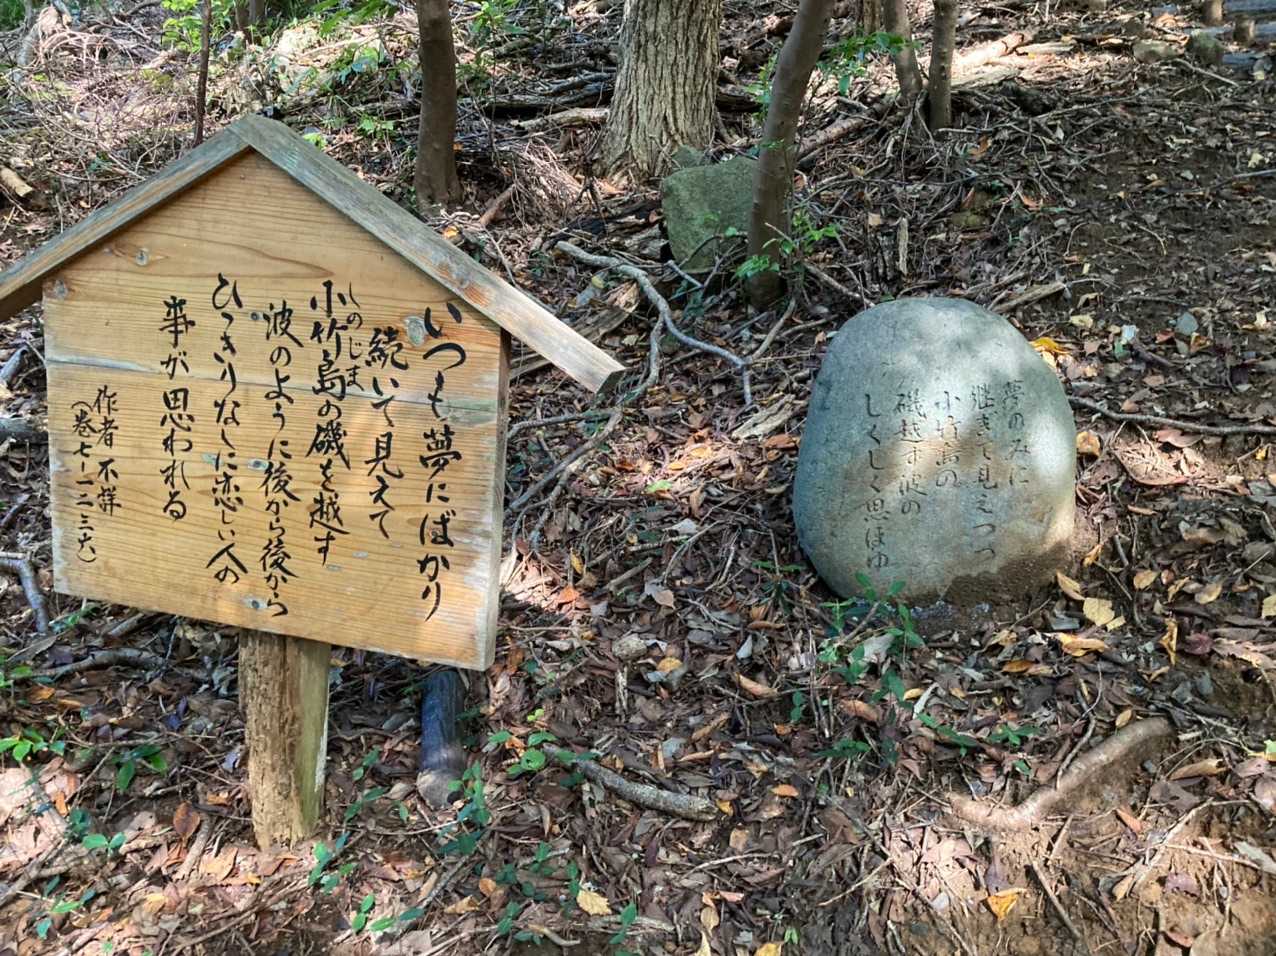 いつも夢にばかり
続いて見えて
しのじま
小竹島の磯を越す
波のように後から後から
ひっきりなしに恋しい人の
事が思われる
作者不詳
(巻七-一二三六)
夢のみに
継ぎて見えつつ
小竹島の
磯越す波の
しくしく思ほゆ